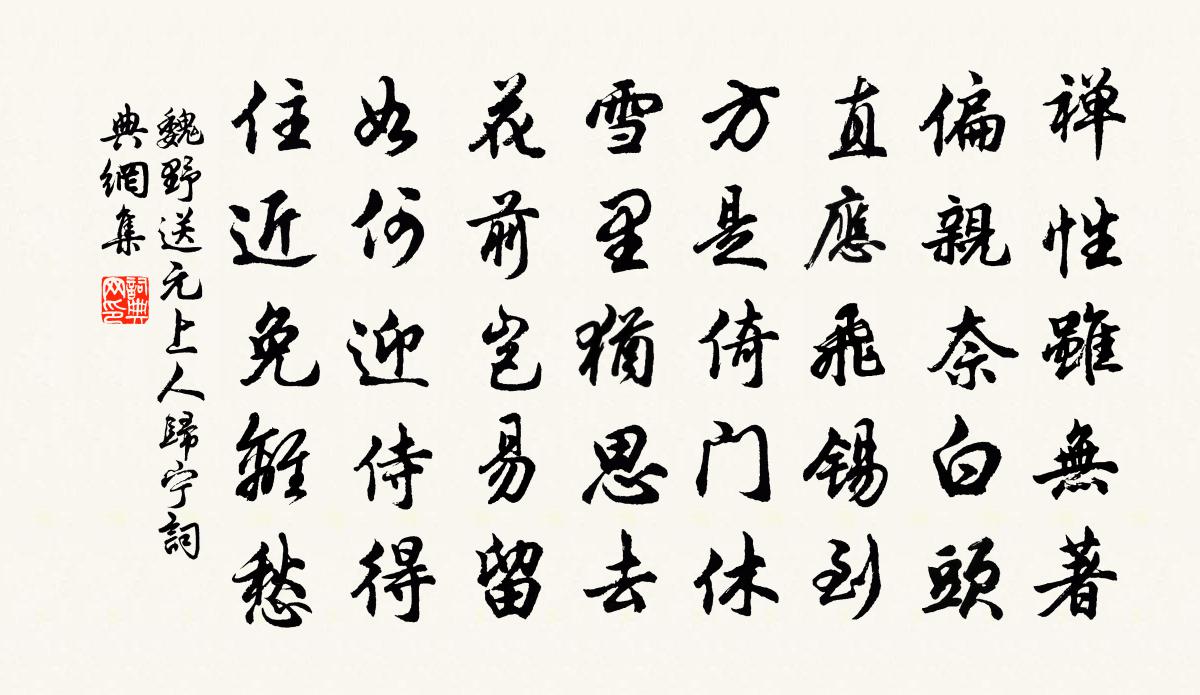 禅性雖無著
偏親奈白頭
直應飛錫到
方是倚门休
雪里猶思去
花前豈易留
如何迎侍得
住近免離愁
魏野送元上人歸宁詞
典網集
詞典
网印